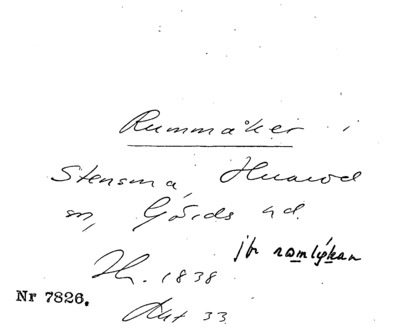 Rummåker i
Stensma, Huarod
sn, Gärds hd.
jfr ramlýkan
Th. 1838
Nr 7826.
Akt 33